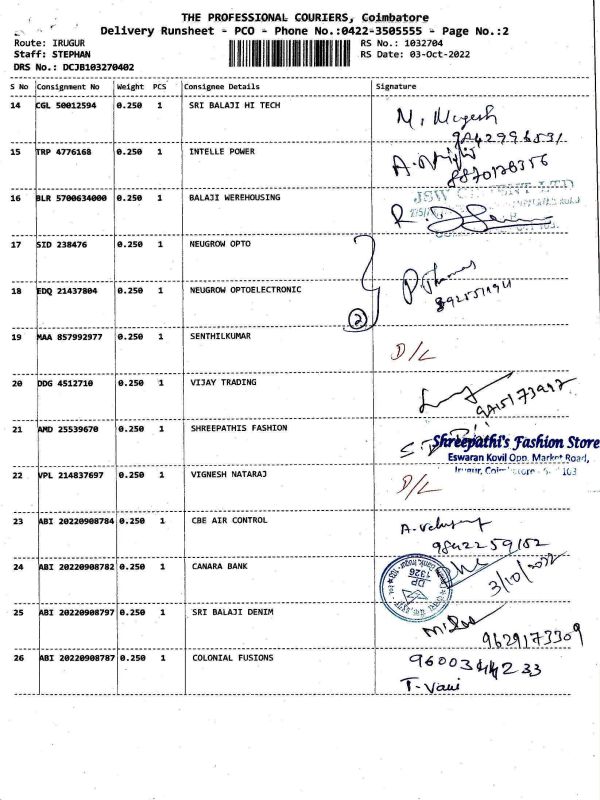 THE PROFESSIONAL COURIERS, Coimbatore
Delivery Runsheet - PCO - Phone No.:0422-3505555 - Page No.:2
Route: IRUGUR
Staff: STEPHAN
DRS No.: DCJB103270402
RS No.: 1032704
RS Date: 03-Oct-2022
S No Consignment No Weight PCS Consignee Details Signature
14 CGL 50012594 0.250 1 SRI BALAJI HI TECH
M. Mugesh
15 TRP 4776168 0.250 1 INTELLE POWER
8870126356
16 BLR 5700634000 0.250 1 BALAJI WEREHOUSING
JSW CEMENT LTD
17 SID 238476 0.250 1 NEUGROW OPTO
18 EDQ 21437804 0.250 1 NEUGROW OPTOELECTRONIC
2
19 MAA 857992977 0.250 1 SENTHILKUMAR
D/L
20 DDG 4512710 0.250 1 VIJAY TRADING
21 AMD 25539670 0.250 1 SHREEPATHIS FASHION
Shreepathi's Fashion Store
Eswaran Kovil Opp. Market Road,
22 VPL 214837697 0.250 1 VIGNESH NATARAJ
D/L
23 ABI 20220908784 0.250 1 CBE AIR CONTROL
9842259152
24 ABI 20220908782 0.250 1 CANARA BANK
DP
1326
3/10/2022
25 ABI 20220908797 0.250 1 SRI BALAJI DENIM
9629173309
26 ABI 20220908787 0.250 1 COLONIAL FUSIONS
9600344233
T. Vani